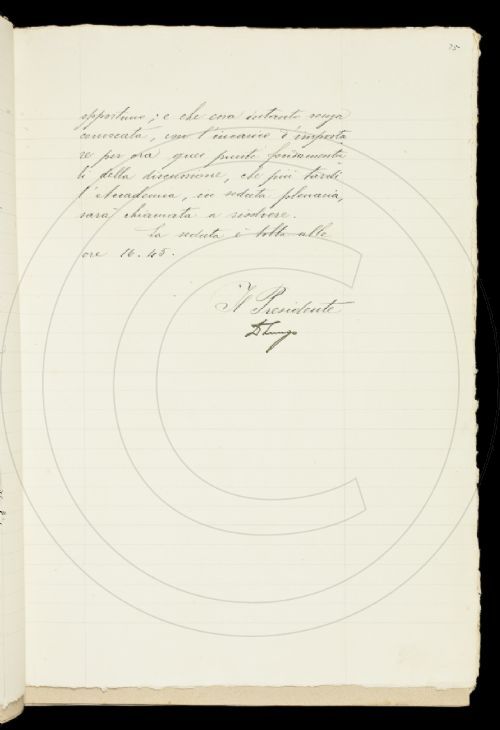 75
opportuno; e che essa intanto venga
convocata, con l'incarico d'imposta
re per ora quei punti fondamenta
li della discussione, che più tardi
l'Accademia, in seduta plenaria,
sarà chiamata a risolvere.
La seduta è tolta alle
ore 16.45.
Il Presidente